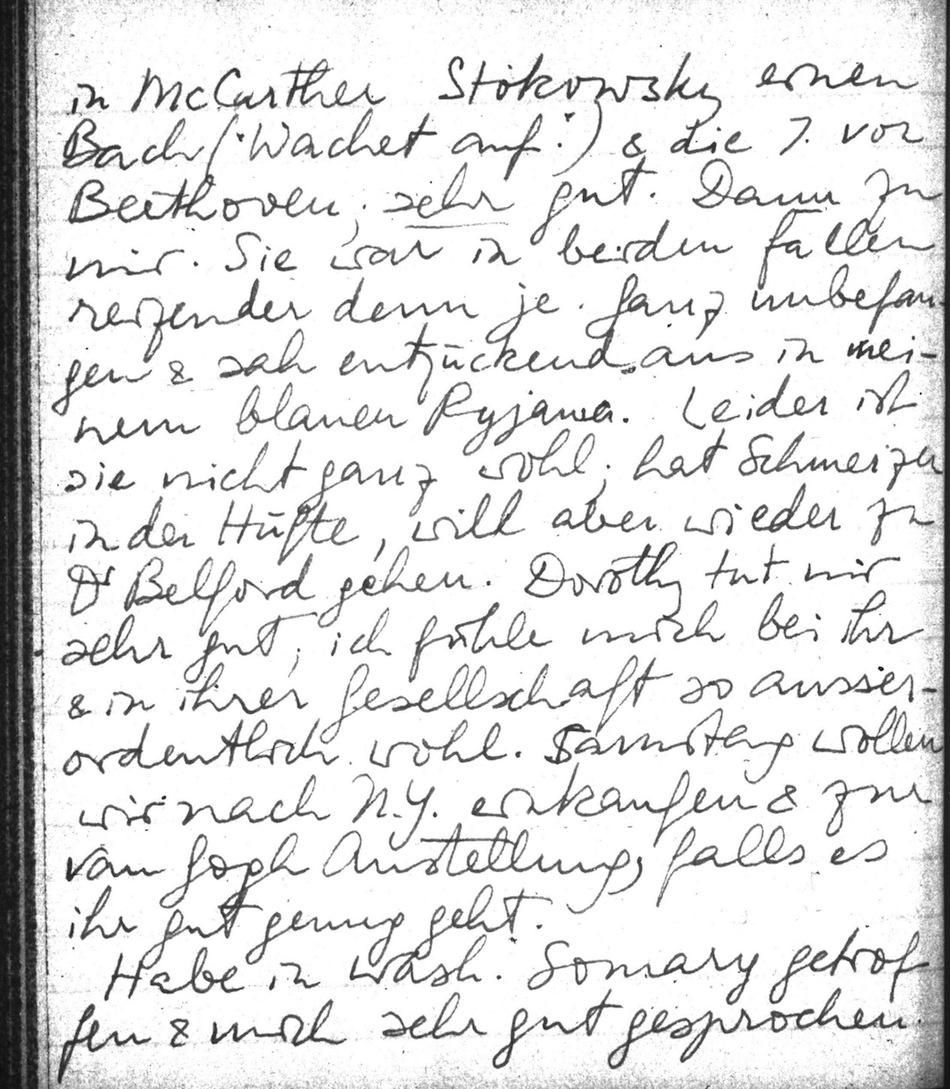 in McCarther Stokowsky einen
Bach ("Wachet auf") & die 7. von
Beethoven, sehr gut. Dann zu
mir. Sie war in beiden fällen
reizender denn je. Ganz unbefan
gen & sah entzückend aus in mei-
nem blauen Pyjama. Leider ist
sie nicht ganz wohl; hat Schmerzen
in der Hüfte, will aber wieder zu
Dr Belford gehen. Dorothy tut mir
sehr gut; ich fühle mich bei ihr
& in ihrer Gesellschaft so ausser-
ordentlich wohl. Samstag wollen
wir nach N.Y. einkaufen & zur
van Gogh Austellung, falls es
ihr gut genug geht.
Habe in Wash. Somary getrof
fen & mich sehr gut gesprochen.